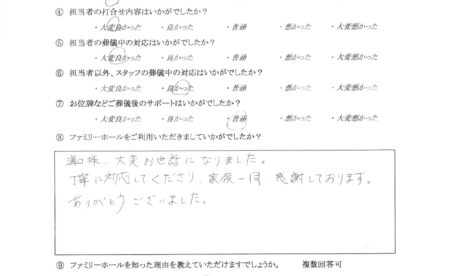 ④ 担当者の打合せ内容はいかがでしたか？
・大変良かった ・良かった ・普通 ・悪かった ・大変悪かった
⑤ 担当者の葬儀中の対応はいかがでしたか？
・大変良かった ・良かった ・普通 ・悪かった ・大変悪かった
⑥ 担当者以外、スタッフの葬儀中の対応はいかがでしたか？
・大変良かった ・良かった ・普通 ・悪かった ・大変悪かった
⑦ お位牌などご葬儀後のサポートはいかがでしたか？
・大変良かった ・良かった ・普通 ・悪かった ・大変悪かった
⑧ ファミリーホールをご利用いただきましていかがでしたか？
様、大変お世話になりました。
丁寧に対応してくださり、家族一同 感謝しております。
ありがとうございました。
⑨ ファミリーホールを知った理由を教えていただけますでしょうか。 複数回答可